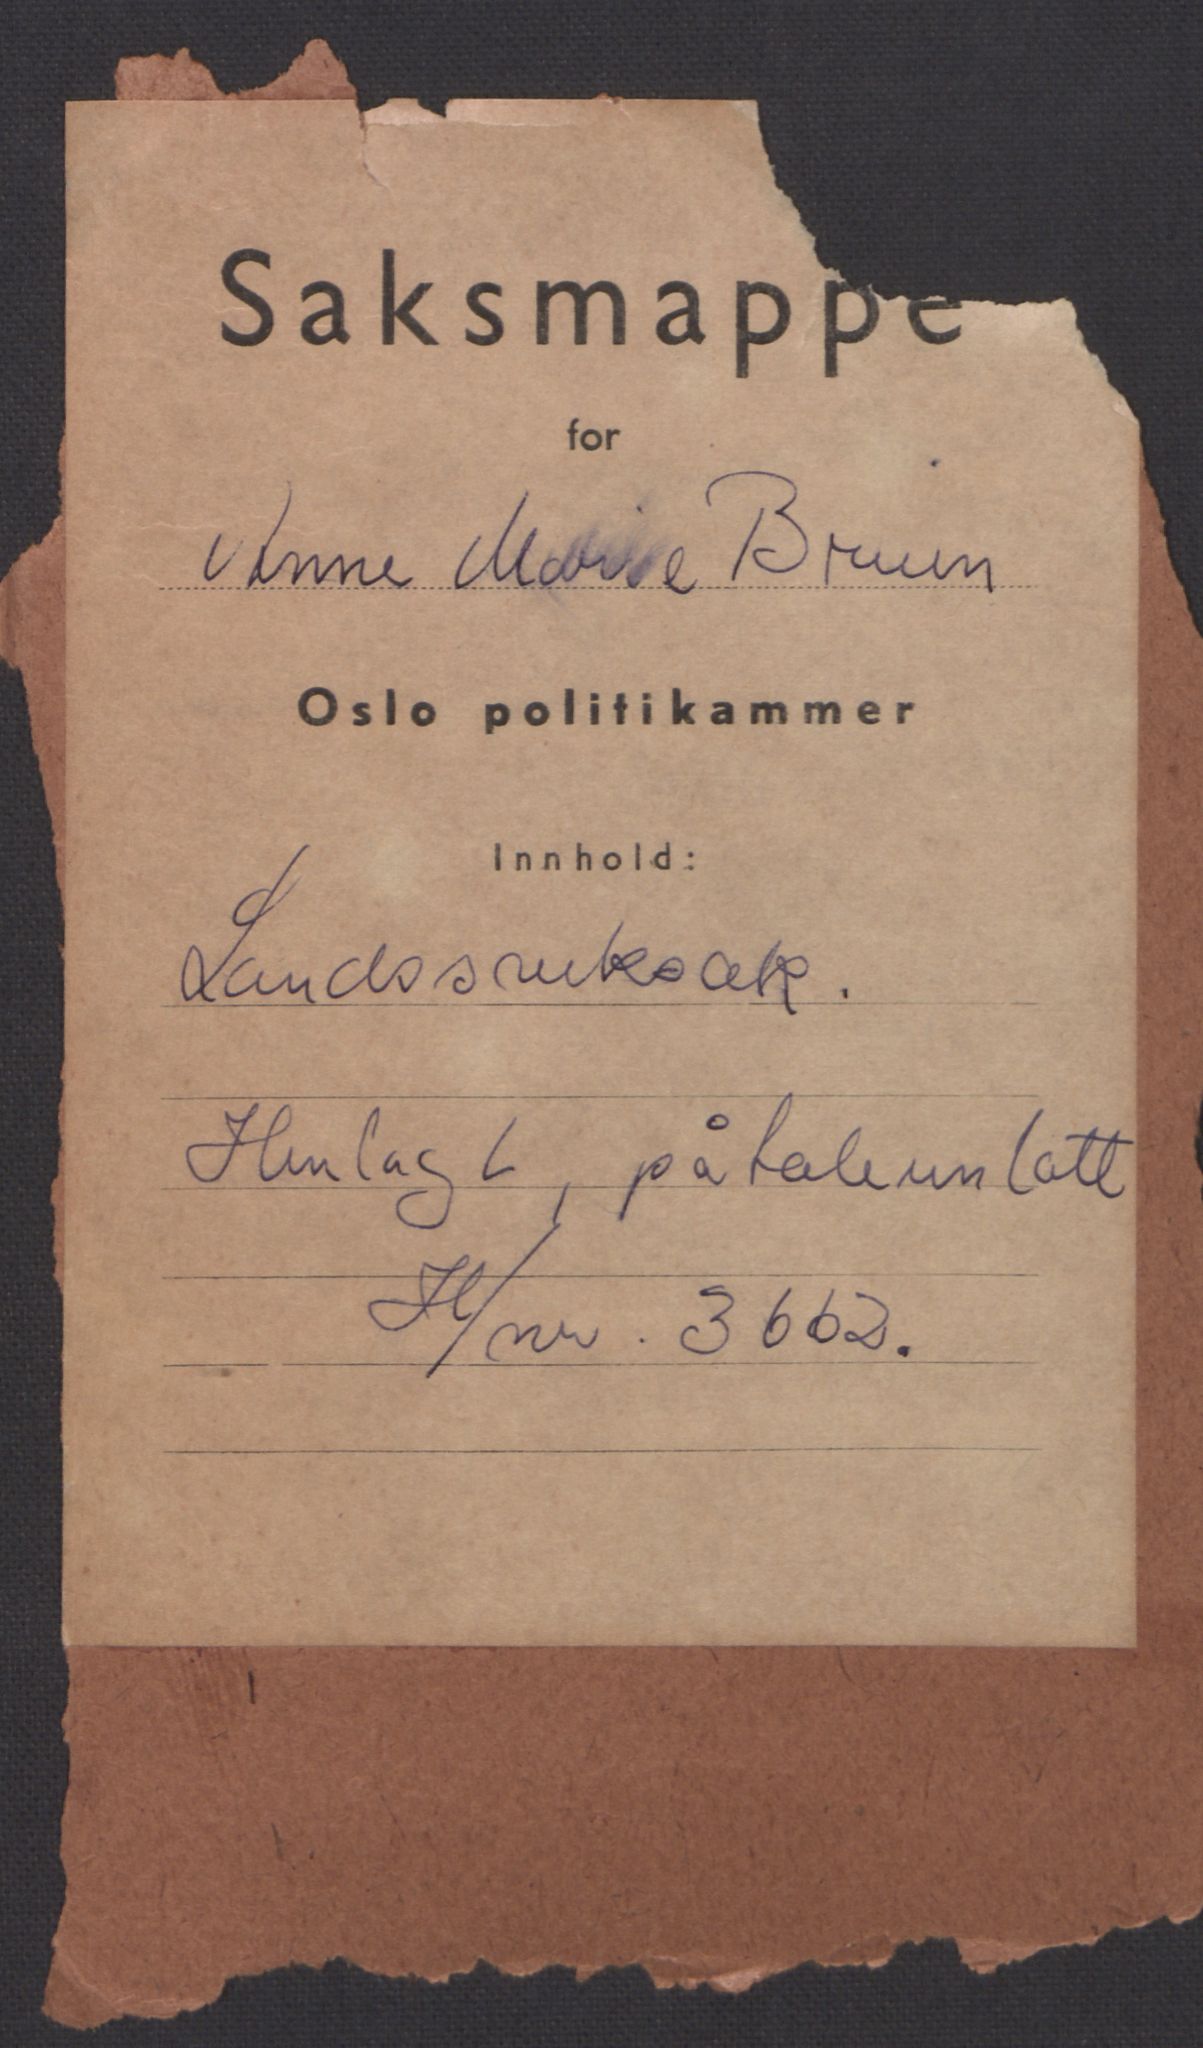 Saksmappe
for
Anne Marie Bruun
Oslo politikammer
Innhold:
Landssviksak.
Henlagt, påtaleunlatt
H/nr. 3662.